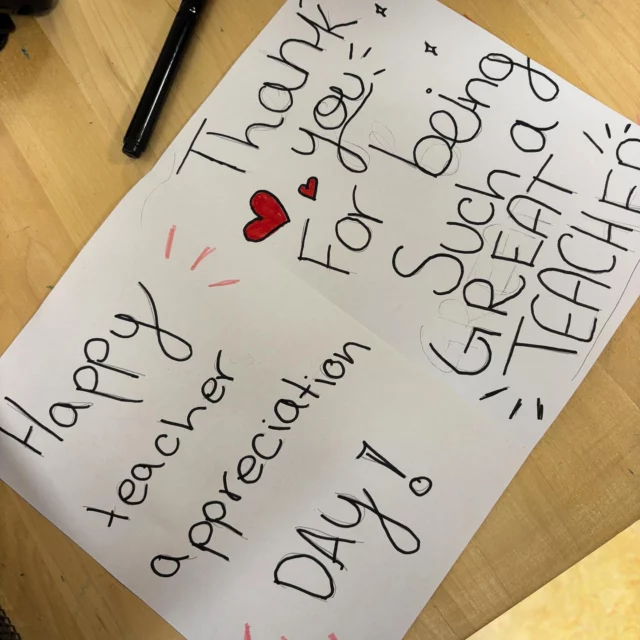 Happy
teacher
appreciation
DAY!
Thank
you
For being
Such a
GREAT
TEACHER